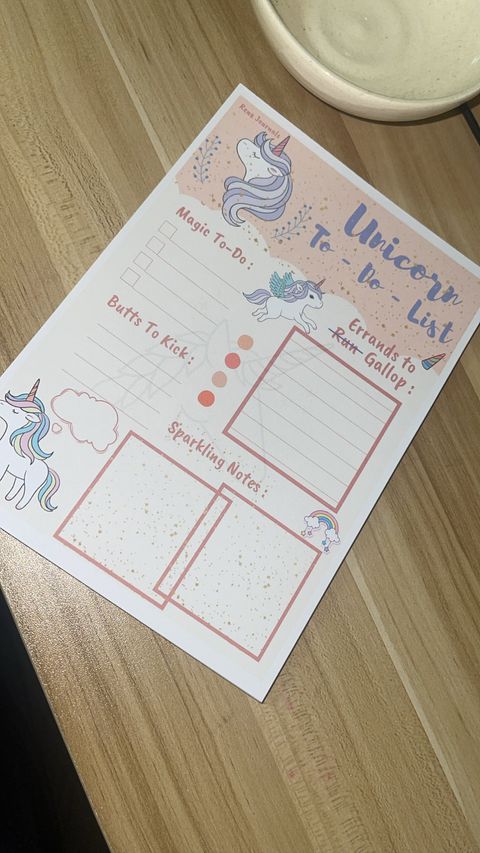 Renz Journals
Unicorn
To - Do - List
Magic To-Do :
Errands to
Run Gallop :
Butts To Kick :
Sparkling Notes :